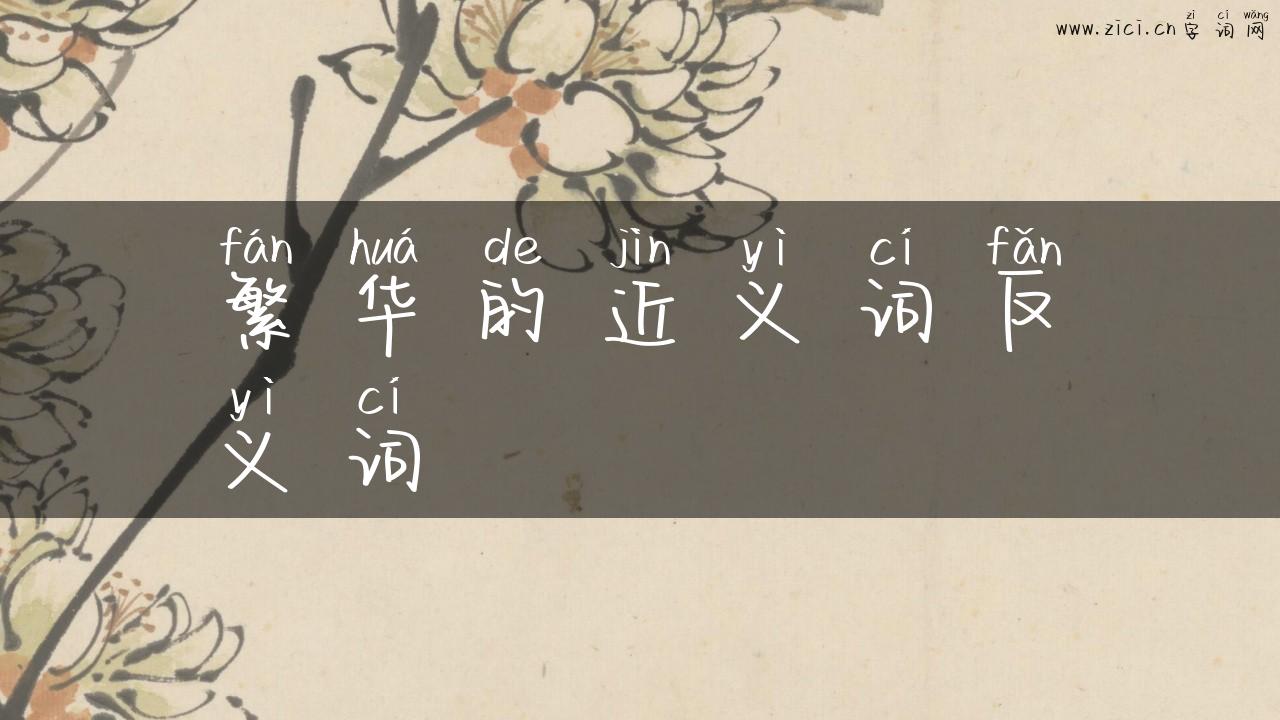 zì cí wǎng
www.zici.cn 字词网
fán huá de jìn yì cí fǎn
繁华的近义词反
yì cí
义词